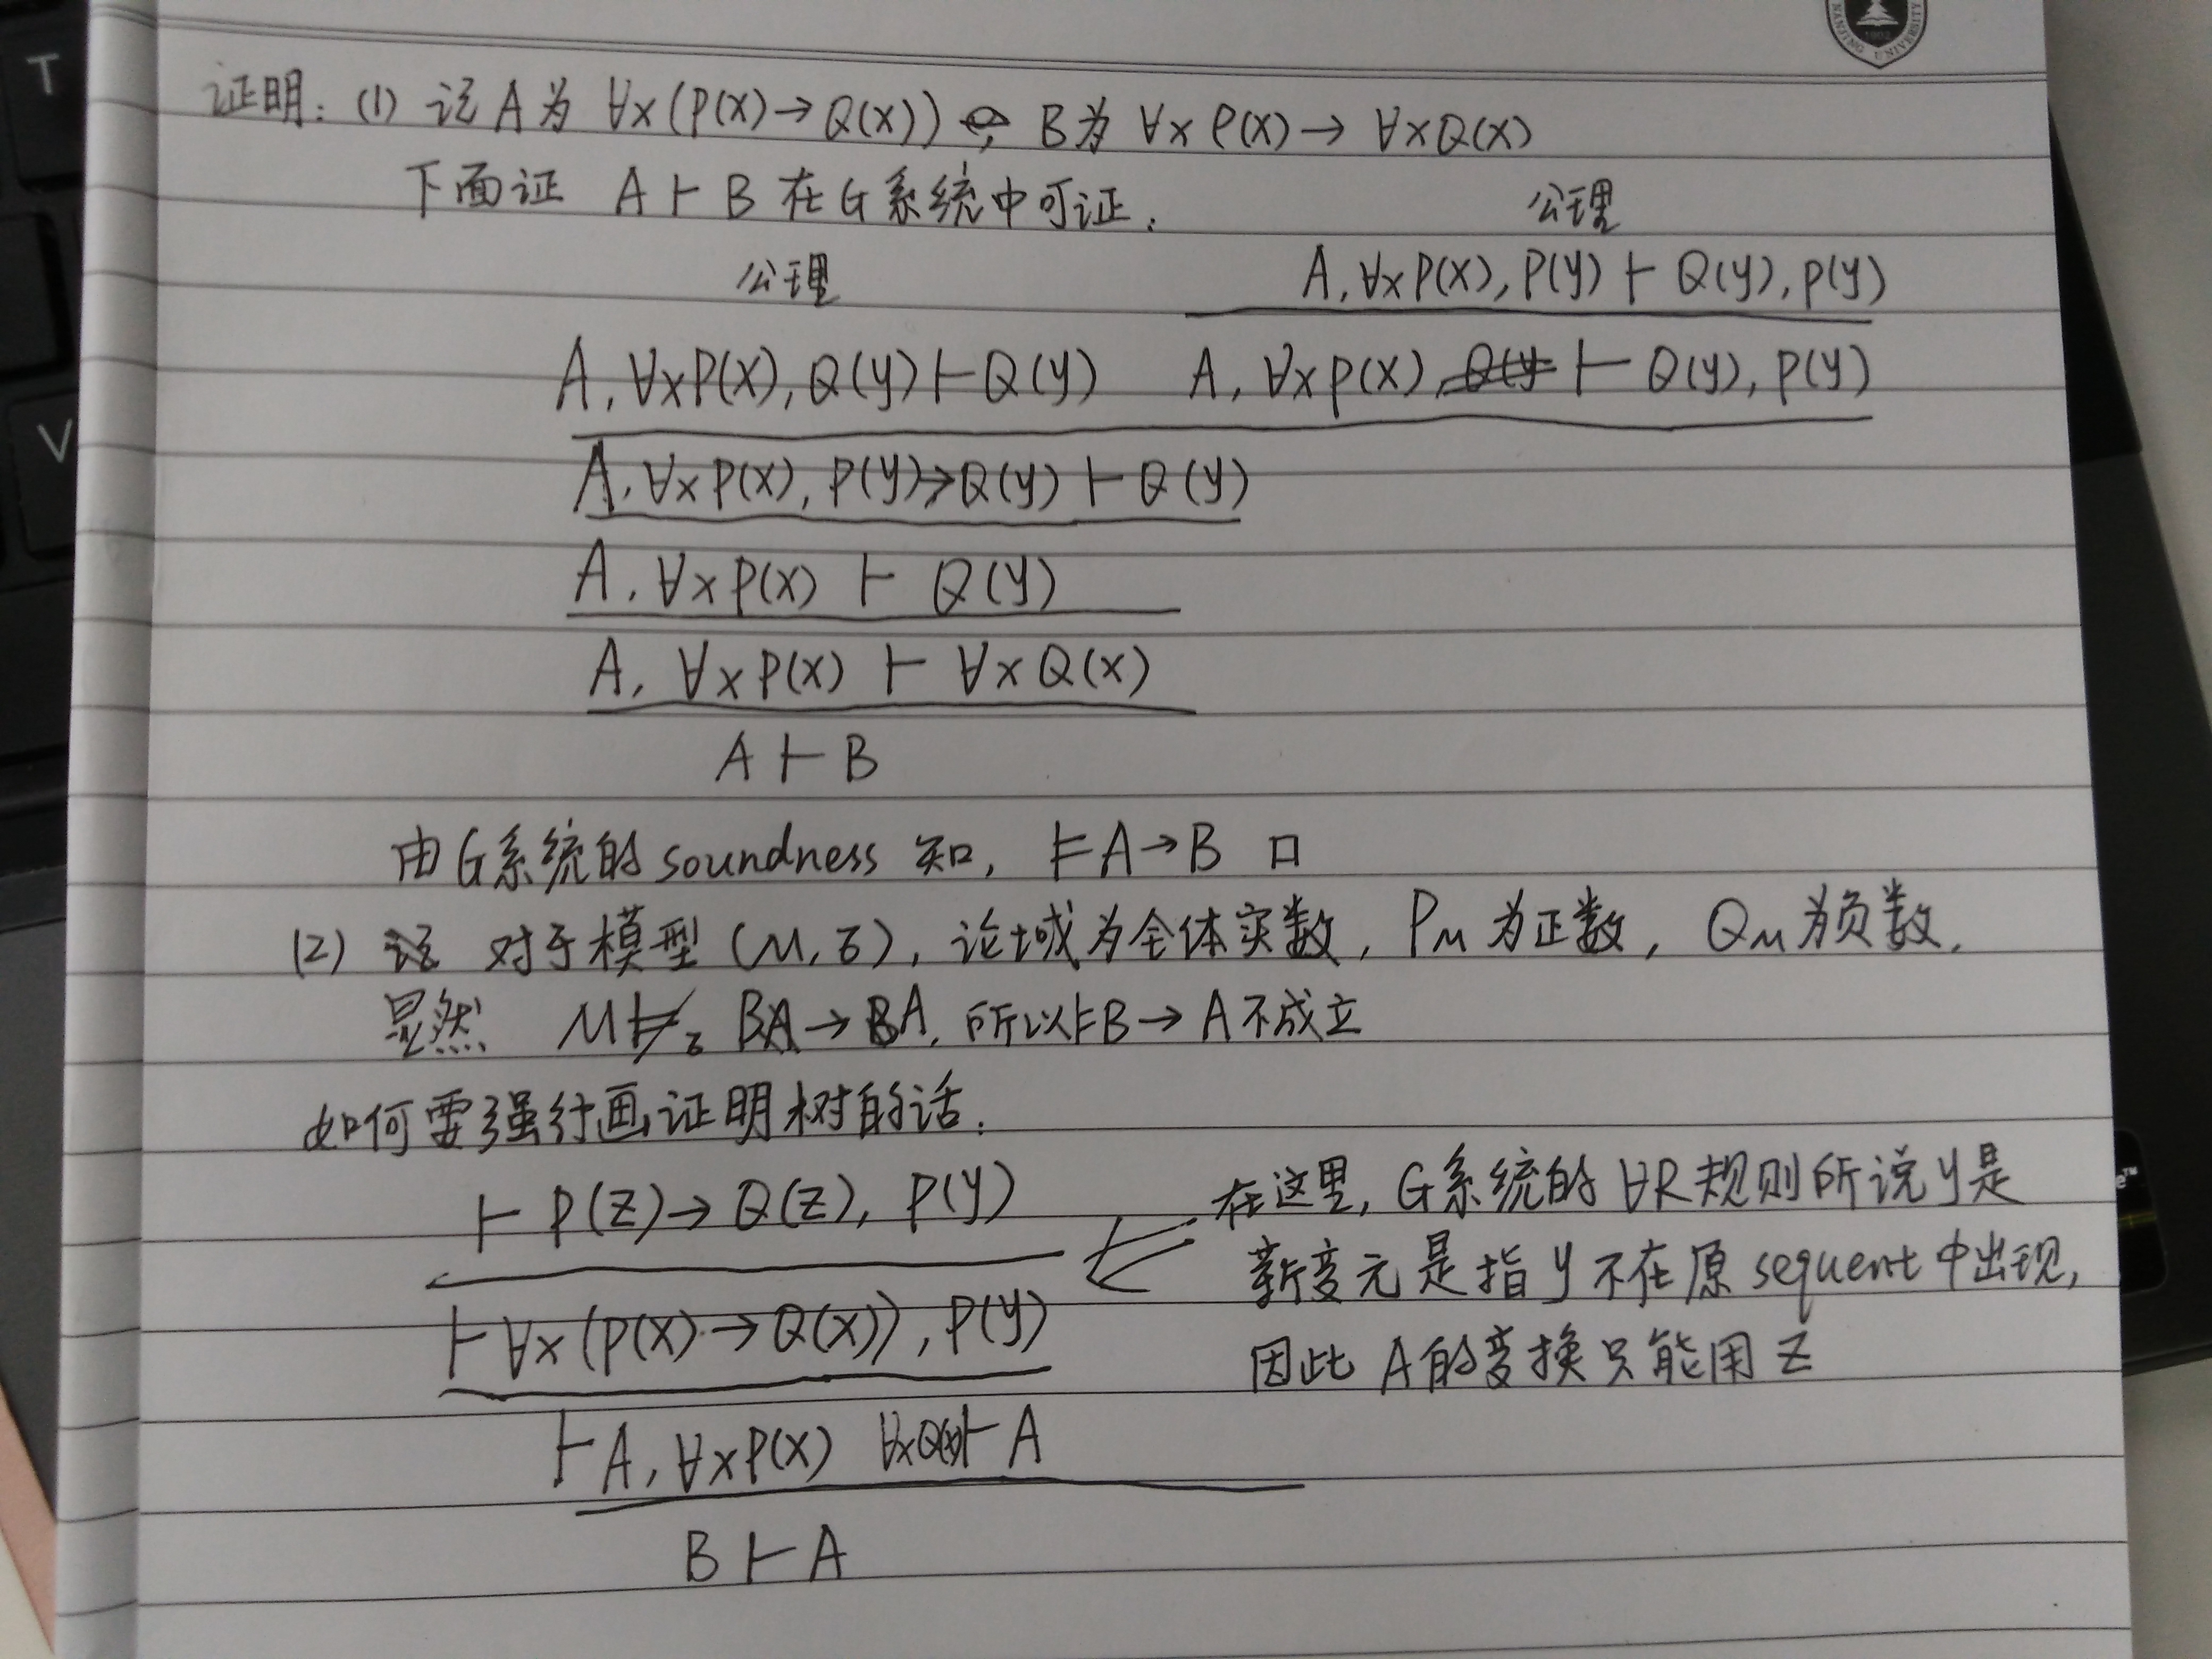 NANJING UNIVERSITY
1902
T
V
证明: (1) 记 A 为 ∀x(P(x)→Q(x)), B 为 ∀xP(x)→∀xQ(x)
下面证 A⊢B 在G系统中可证.
公理
公理
A, ∀xP(x), P(y)⊢Q(y), P(y)
A, ∀xP(x), Q(y)⊢Q(y) A, ∀xP(x), ⊢Q(y), P(y)
A, ∀xP(x), P(y)→Q(y)⊢Q(y)
A, ∀xP(x)⊢Q(y)
A, ∀xP(x)⊢∀xQ(x)
A⊢B
由G系统的soundness知, ⊨A→B □
(2) 对于模型(M,σ), 论域为全体实数, P_M为正数, Q_M为负数.
显然 M⊭_σ B→A, 所以⊨B→A不成立
如何要强行画证明树的话.
⊢P(z)→Q(z), P(y)
在这里, G系统的∀R规则所说y是
新变元是指y不在原sequent中出现,
⊢∀x(P(x)→Q(x)), P(y)
因此A的变换只能用z
⊢A, ∀xP(x) ∀xQ(x)⊢A
B⊢A